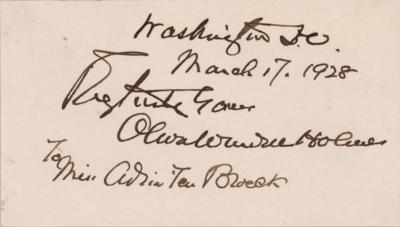 Washington D.C.
March 17. 1928
Yours
Oliver Wendell Holmes
To
Miss Ten Broeck